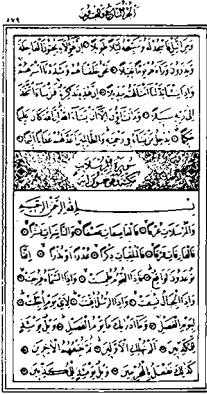 الجزء التاسع والعشرون
٤٧٩
وَمِنَ اللَّيْلِ فَاسْجُدْ لَهُ وَسَبِّحْهُ لَيْلًا طَوِيلًا ۞ إِنَّ هٰؤُلَاءِ يُحِبُّونَ الْعَاجِلَةَ
وَيَذَرُونَ وَرَاءَهُمْ يَوْمًا ثَقِيلًا ۞ نَحْنُ خَلَقْنَاهُمْ وَشَدَدْنَا أَسْرَهُمْ
وَإِذَا شِئْنَا بَدَّلْنَا أَمْثَالَهُمْ تَبْدِيلًا ۞ إِنَّ هٰذِهِ تَذْكِرَةٌ فَمَنْ شَاءَ اتَّخَذَ
إِلَى رَبِّهِ سَبِيلًا ۞ وَمَا تَشَاؤُنَ إِلَّا أَنْ يَشَاءَ اللهُ إِنَّ اللهَ كَانَ عَلِيمًا
حَكِيمًا ۞ يُدْخِلُ مَنْ يَشَاءُ فِي رَحْمَتِهِ وَالظَّالِمِينَ أَعَدَّ لَهُمْ عَذَابًا أَلِيمًا
سورة المرسلات
بِسْمِ اللهِ الرَّحْمٰنِ الرَّحِيمِ
وَالْمُرْسَلَاتِ عُرْفًا ۞ فَالْعَاصِفَاتِ عَصْفًا ۞ وَالنَّاشِرَاتِ نَشْرًا ۞
فَالْفَارِقَاتِ فَرْقًا ۞ فَالْمُلْقِيَاتِ ذِكْرًا ۞ عُذْرًا أَوْ نُذْرًا ۞ إِنَّمَا
تُوعَدُونَ لَوَاقِعٌ ۞ فَإِذَا النُّجُومُ طُمِسَتْ ۞ وَإِذَا السَّمَاءُ فُرِجَتْ ۞
وَإِذَا الْجِبَالُ نُسِفَتْ ۞ وَإِذَا الرُّسُلُ أُقِّتَتْ ۞ لِأَيِّ يَوْمٍ أُجِّلَتْ ۞
لِيَوْمِ الْفَصْلِ ۞ وَمَا أَدْرٰيكَ مَا يَوْمُ الْفَصْلِ ۞ وَيْلٌ يَوْمَئِذٍ
لِلْمُكَذِّبِينَ ۞ أَلَمْ نُهْلِكِ الْأَوَّلِينَ ۞ ثُمَّ نُتْبِعُهُمُ الْآخِرِينَ ۞
كَذٰلِكَ نَفْعَلُ بِالْمُجْرِمِينَ ۞ وَيْلٌ يَوْمَئِذٍ لِلْمُكَذِّبِينَ ۞